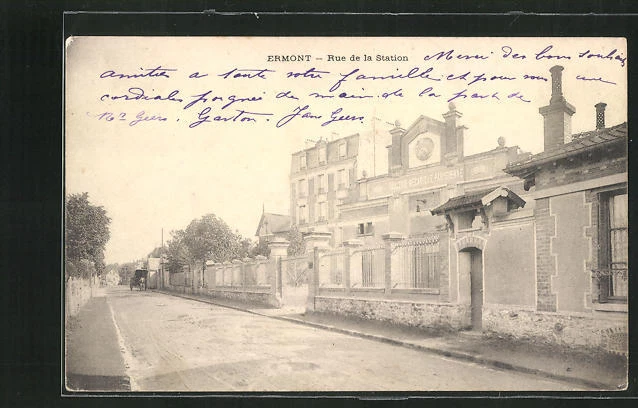 ERMONT — Rue de la Station
Merci des bons souhaits
amitiés a toute votre famille et pour vous une
cordiales poignée de main de la part de
Mr Geers. Gaston. Jane Geers